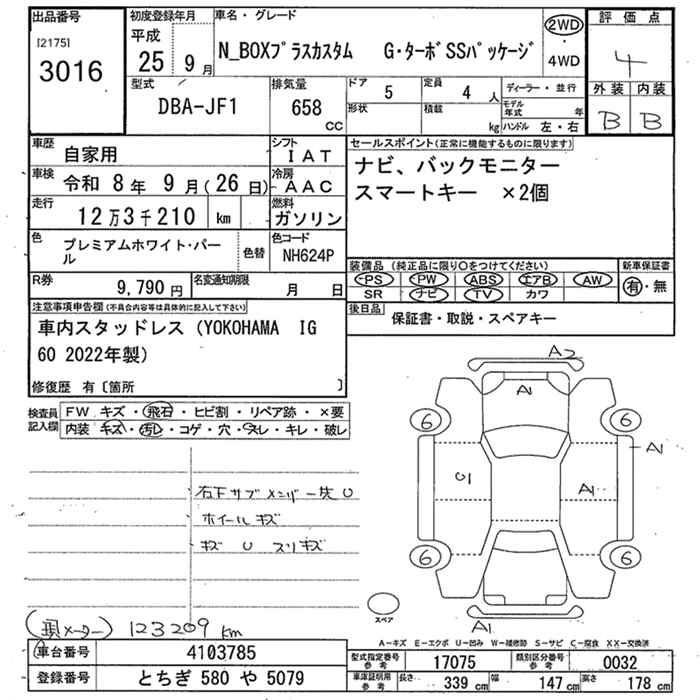 出品番号
[2175]
3016
初度登録年月
平成
25年 9月
車名・グレード
N_BOXプラスカスタム G・ターボSSパッケージ
2WD
・
4WD
評価点
4
外装 内装
B B
型式
DBA-JF1
排気量
658
CC
ドア
5
定員
4人
形状
積載
kg
ディーラー・並行
モデル年式 年
ハンドル 左・右
車歴
自家用
シフト
IAT
車検
令和 8年 9月(26日)
冷房
AAC
走行
12万3千210 km
燃料
ガソリン
色
プレミアムホワイト・パール
色替
色コード
NH624P
R券
9,790円
名変通知期限
月 日
セールスポイント(正常に機能するものに限ります)
ナビ、バックモニター
スマートキー ×2個
装備品(純正品に限り○をつけてください)
PS PW ABS エアB AW
SR ナビ TV カワ
新車保証書
有・無
後日品
保証書・取説・スペアキー
注意事項申告欄(不具合内容等は具体的に記入して下さい)
車内スタッドレス(YOKOHAMA IG
60 2022年製)
修復歴 有〔箇所 〕
検査員
記入欄
FW キズ・飛石・ヒビ割・リペア跡・×要
内装 キズ・汚レ・コゲ・穴・スレ・キレ・破レ
右下サブメンバー先U
ホイールキズ
キズ U スリキズ
(現メーター) 123209km
A2
A1
6
6
A1
U1
A1
6
6
A1
スペア
A-キズ E-エクボ U-凹み W-補修跡 S-サビ C-腐食 XX-交換済
車台番号
4103785
登録番号
とちぎ 580 や 5079
型式指定番号
参考
17075
類別区分番号
参考
0032
車庫証明用
参考
長さ
339cm
幅
147cm
高さ
178cm